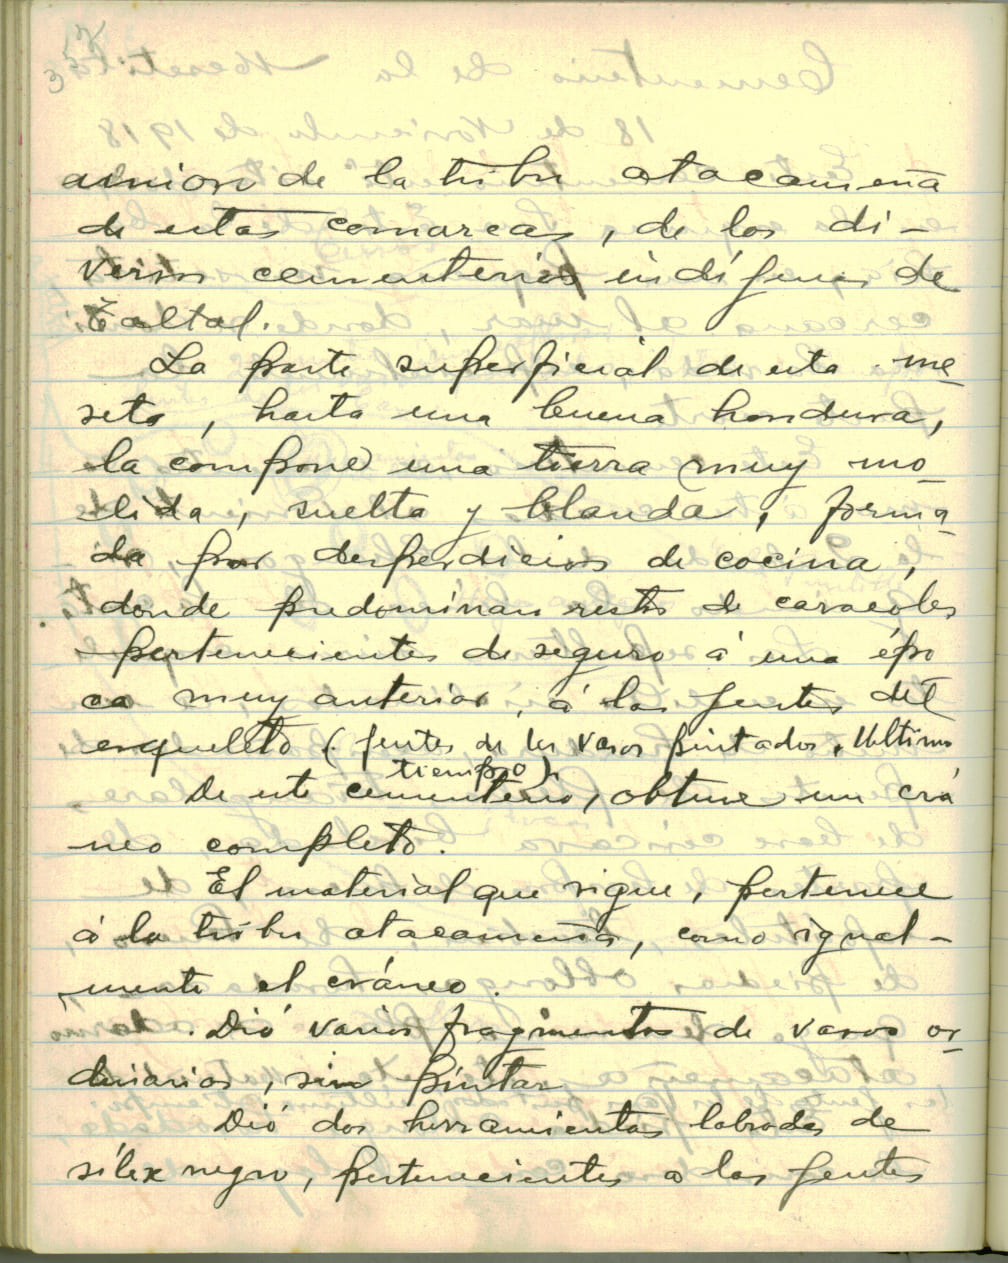 de la tribu atacameña
de estas comarcas, de los di-
versos cementerios indígenas de
Taltal.
La parte superficial de esta me-
seta, hasta una buena hondura,
la compone una tierra muy mo-
lida, suelta y blanda, forma-
da por desperdicios de cocina,
donde predominan restos de caracoles
pertenecientes de seguro á una épo
ca muy anterior, á las gentes del
esqueleto (gentes de los vasos pintados, Ultimo
tiempo).
De este cementerio, obtuve un crá
neo completo.
El material que sigue, pertenece
á la tribu atacameña, como igual-
mente el cráneo.
Dió varios fragmentos de vasos or-
dinarios, sin pintar
Dió dos herramientas labradas de
sílex negro, pertenecientes a las gentes